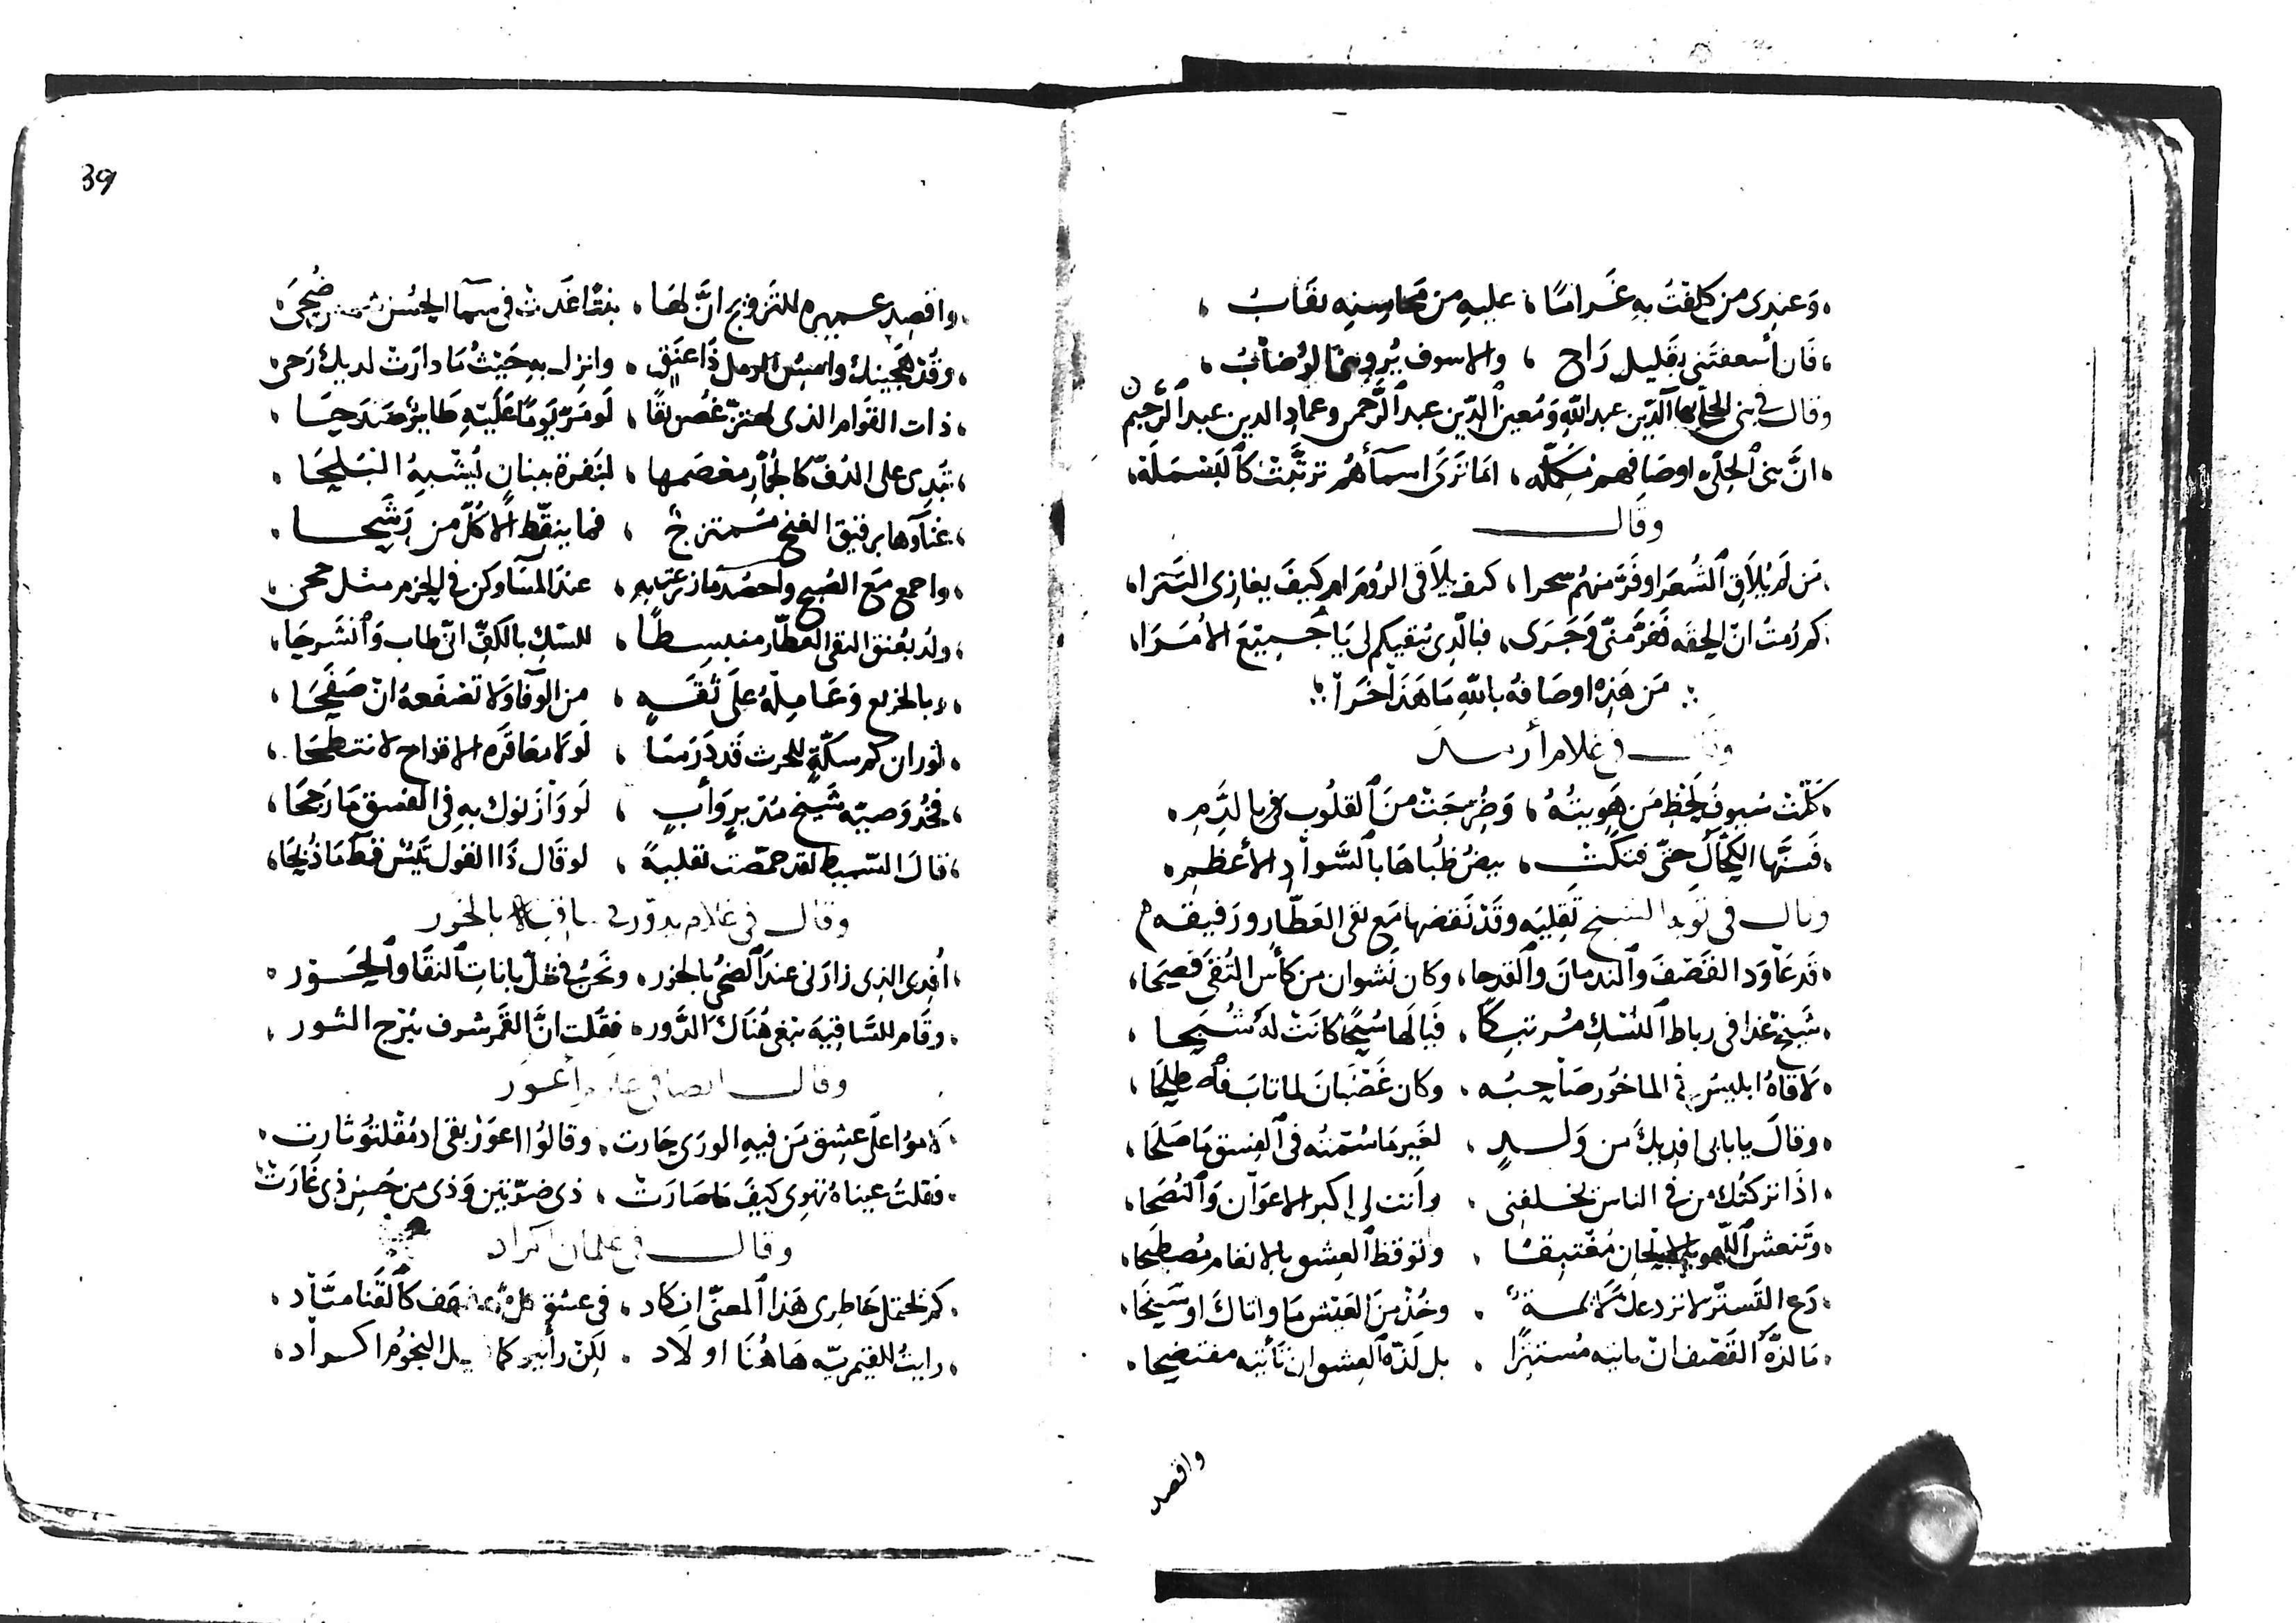 وَعندِى من كلفتُ بهِ غَرامًا، عليهِ من مَحاسِنِه نقَابُ
فَان أسعفتَنى بقَليل رَاح، والا سوف يُروينا الرُضابُ
وقال فى بنى الحلى بها الدّين عبد اللّهِ وَمُعين الدّين عبد الرَّحمن وعماد الدين عبد الرَّحِيم
انَّ بنى الحلّى اوصَافهم مُكمّله، امَا تَرَى اسمآءهُم ترتَّبَتْ كالبَسْمَلَة
وقال
مَن لم يُلاقِ الشُعَرا وفَرَّ منهُم سحرا، كيف يلاقى الروُم ام كيفَ يغازى التَترا
كم رُمتُ ان الحقَه فَفَرَّ منّى وَجَرَى، فبالّذِى يُبقيكم لى يَا جَميعَ الأمَرَا
مَن هَذِه اوصَافُه باللّهِ مَا هَذَا خَرَا
وقال فى غلام أرمد
كَلّتْ سُيوفُ لحظِ مَن هَوِيتُهُ، وَضُرِّجَتْ منَ القلُوبِ بالدَّمِ
فَسنَّها الكحّالُ حتّى فتكَتْ، بيضُ ظُباهَا بالسَّوادِ الأعظمِ
وقال فى توبة الشيخ تَقليبَه وقَدْ نَقضها مَع تقى العَطّار ورَفيقه
قَد عَاوَد القَصْفَ والندمانَ والقدحا، وكان نَشوان من كأس التُقى فَصحَا
شَيخ غدا فى رباط النُسْكِ مُرتبكًا، فيَا لهَا سُبحًا كانَتْ لهُ شَبَحا
لاقاهُ ابليسُ فى الماخُور صَاحِبُه، وكان غَضْبَانَ لما تابَ فاصطلحَا
وقالَ يا بابى افدِيكَ من وَلدٍ، لغَير مَا سُمتُه فى الفِسق مَا صَلَحَا
اذَا تركتُك من فى الناس يخلفنى، وانت لى اكبر الاعوَان وَالنُصَحَا
وَتنعشُ اللّهو بالالحان مُغتبِقًا، وتوقظ العِشق بالانغام مُصطبحا
دَع التَستّر لا تردعك لَائمة، وخُذْ منَ العَيْش مَا واتاكَ او سَنحَا
مَا لذّة القَصْف ان تاتيه مُستترًا، بل لَذّة العِشق ان تَأتيَه مفتضِحا
واقصد
39
واقصِد عميره للتَزويج انَّ لهَا، بنتًا غَدَتْ فى سمآ الحُسن شمس ضُحَى
وقُدْ هَجينَك واميُس الرمل ذَا عنَقٍ، وانزِل به حَيْثُ مَا دارَتْ لديك رَحى
ذات القوَام الذى يهتزّ غُصن نقًا، لَو مَرّ يَومًا عَلَيْه طَايرٌ صَدَحَا
تُبدِى على الدُفّ كالجُمّار مِعصَمها، لنَقرة ببنانٍ يُشبِهُ البَلحَا
غنآؤها برقيق الغنج مُمتزجٌ، فما ينقّط الا كُلّ من رَشَحا
واجمع مَع الصُبح
ولُذ بعُنق التقى العطّار منبسِطًا، للسّكِ بالكفِّ ان طاب وَانشَرحَا
من الوفَا وَلا تصْفَعهُ انْ صَفَحَا
ثوران كم سكّةٍ للحرث قَد دَرسَا، لَولَا معَاقرَه الاقداح لانتطَحَا
فخُذ وَصيّه شَيخ مُدبرٍ وَأبٍ، لَو وَازَنوكَ بهِ فى الفسق مَا رَجَحَا
قالَ السّميط لقد حمّصت تقليبةً، لو قَال ذَا القول تَيْسٌ قطّ مَا ذُبحَا
وقال فى غلام بالخور
اُفدِى الذِى زارَنى عندَ الضحُى بالخور، ونَحنُ فى ظلّ باناتِ النقَا والحَوَر
وقَام للسَّاقيَه يَبغى هُنَاكَ الدَّور، فقلت انَّ القَمر سَوف بُرْج الثور
وقال ايضا فى غلام أعوَر
لامُوا علَى عشِق مَن فيهِ الورَى حَارت، وقالوُا اعوَر بقى اد مُقلتو ثارت
فقلتُ عيناه تهوى كيفَ مَا صَارَتْ، ذى ضرّتين وَذى من حُسْن ذِى غَارَتْ
وقال فى غلمان اكراد
كم تحتمل خاطِرى هَذا المعنّى انكاد، فى عشق كالقَنا ميَّاد
رايتُ للقيمريّه هَا هُنَا اولَاد، لكِنْ النجُوم اكراد